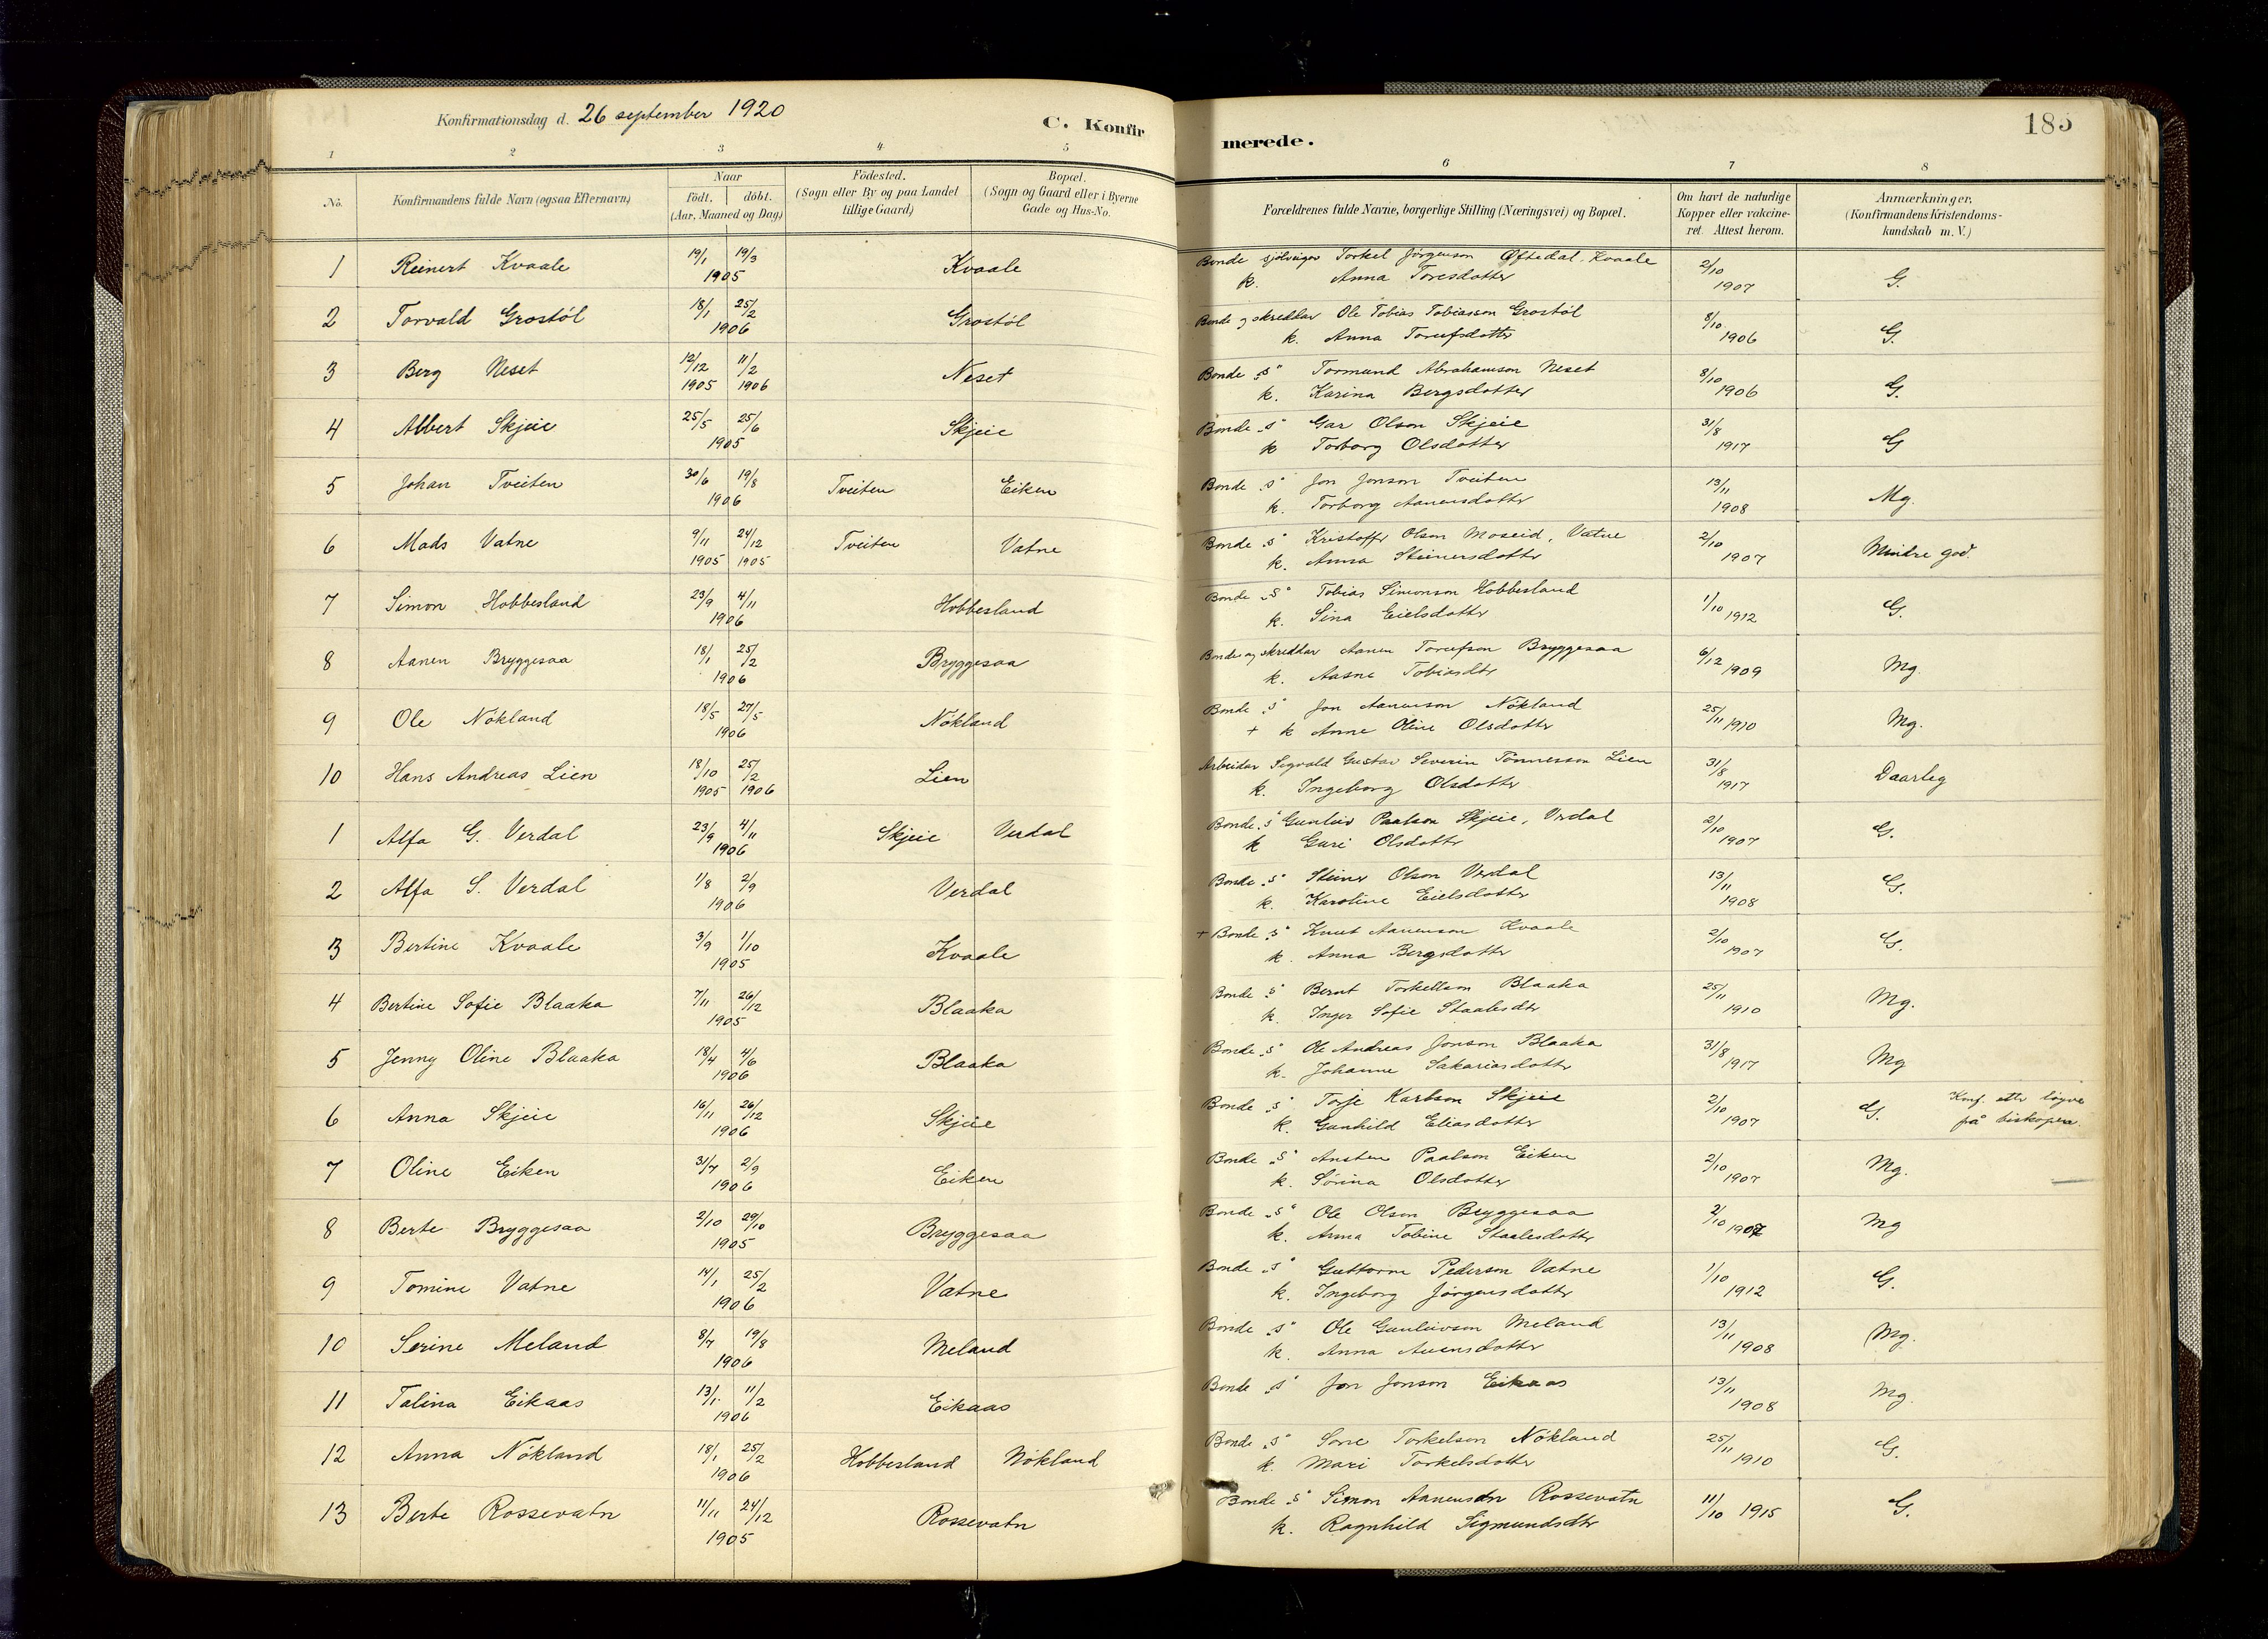 Konfirmationsdag d. 26 september 1920
C. Konfirmerede.
185
1 2 3 4 5 6 7 8
No.
Konfirmandens fulde Navn (ogsaa Efternavn)
Naar
födt. döbt.
(Aar, Maaned og Dag)
Födested.
(Sogn eller By og paa Landet
tillige Gaard)
Bopæl.
(Sogn og Gaard eller i Byerne
Gade og Hus-No.
Forældrenes fulde Navne, borgerlige Stilling (Næringsvei) og Bopæl.
Om havt de naturlige
Kopper eller vakcine-
ret. Attest herom.
Anmærkninger.
(Konfirmandens Kristendoms-
kundskab m. V.)
1 Reinert Kvaale 19/1 19/3 1905 Kvaale Bonde sjölveigar Torkel Jörgenson Øftedal-Kvaale k. Anna Toresdotter 2/10 1907 G.
2 Torvald Grostöl 18/1 25/2 1906 Grostöl Bonde og skreddar Ole Tobias Tobiasson Grostöl k. Anna Torufsdotter 8/10 1906 G.
3 Berg Neset 12/12 1905 11/2 1906 Neset Bonde "s" Tormund Abrahamson Neset k. Karina Bergsdotter 8/10 1906 G.
4 Albert Skjeie 25/5 25/6 1905 Skjeie Bonde "s" Gar Olson Skjeie k Torborg Olsdotter 31/8 1917 G
5 Johan Tveiten 30/6 19/8 1906 Tveiten Eiken Bonde "s" Jon Jonson Tveiten k. Torborg Aanensdotter 13/11 1908 Mg.
6 Mads Vatne 9/11 1905 24/12 1905 Tveiten Vatne Bonde "s" Kristoffer Olson Moseid, Vatne k. Anna Steinersdotter 2/10 1907 Mindre god.
7 Simon Hobbesland 23/9 4/11 1906 Hobbesland Bonde "s" Tobias Simonson Hobbesland k. Sina Eielsdotter 1/10 1912 G.
8 Aanen Bryggesaa 18/1 25/2 1906 Bryggesaa Bonde og skreddar Aanen Torufson Bryggesaa k. Aasne Tobiasdtr 6/12 1909 Mg.
9 Ole Nökland 18/5 27/5 1906 Nökland Bonde "s" Jon Aanenson Nökland + k Anne Oline Olsdotter 25/11 1910 Mg.
10 Hans Andreas Lien 18/10 1905 25/2 1906 Lien Arbeidar Sigvald Gustav Severin Tönnesson Lien k. Ingeborg Olsdotter 31/8 1917 Daarleg
1 Alfa G. Verdal 23/9 4/11 1906 Skjeie Verdal Bonde "s" Gunleiv Paalson Skjeie, Verdal k Guri Olsdotter 2/10 1907 G.
2 Alfa S. Verdal 1/8 2/9 1906 Verdal Bonde "s" Steiner Olson Verdal k. Karoline Eielsdotter 13/11 1908 G.
3 Bertine Kvaale 3/9 1/10 1905 Kvaale + Bonde "s" Knut Aanenson Kvaale k. Anna Bergsdotter 2/10 1907 G.
4 Bertine Sofie Blaaka 7/11 26/12 1905 Blaaka Bonde "s" Bernt Torkellson Blaaka k. Inger Sofie Staalesdtr 25/11 1910 Mg.
5 Jenny Oline Blaaka 18/4 4/6 1906 Blaaka Bonde "s" Ole Andreas Jonson Blaaka k. Johanne Sakariasdotter 31/8 1917 Mg
6 Anna Skjeie 16/11 26/12 1906 Skjeie Bonde "s" Torje Karlson Skjeie k. Gunhild Eliasdotter 2/10 1907 G. Konf. etter löyve på biskopen.
7 Oline Eiken 31/7 2/9 1906 Eiken Bonde "s" Ansten Paalson Eiken k. Sörina Olsdotter 2/10 1907 Mg.
8 Berte Bryggesaa 2/10 29/10 1905 Bryggesaa Bonde "s" Ole Olson Bryggesaa k. Anna Tobine Staalesdotter 2/10 1907 Mg
9 Tomine Vatne 14/1 25/2 1906 Vatne Bonde "s" Guttorm Pederson Vatne k. Ingeborg Jörgensdotter 1/10 1912 G.
10 Serine Meland 8/7 19/8 1906 Meland Bonde "s" Ole Gunleivson Meland k. Anna Avensdotter 13/11 1908 Mg.
11 Talina Eikaas 13/1 11/2 1906 Eikaas Bonde "s" Jon Jonson Eikaas 13/11 1908 Mg.
12 Anna Nökland 18/1 25/2 1906 Hobbesland Nökland Bonde "s" Torkelson Nökland k. Mari Torkelsdotter 25/11 1910 G.
13 Berte Rossevatn 11/11 24/12 1905 Rossevatn Bonde "s" Simon Aanenson Rossevatn k. Ragnhild Sigmundsdtr 11/10 1915 G.